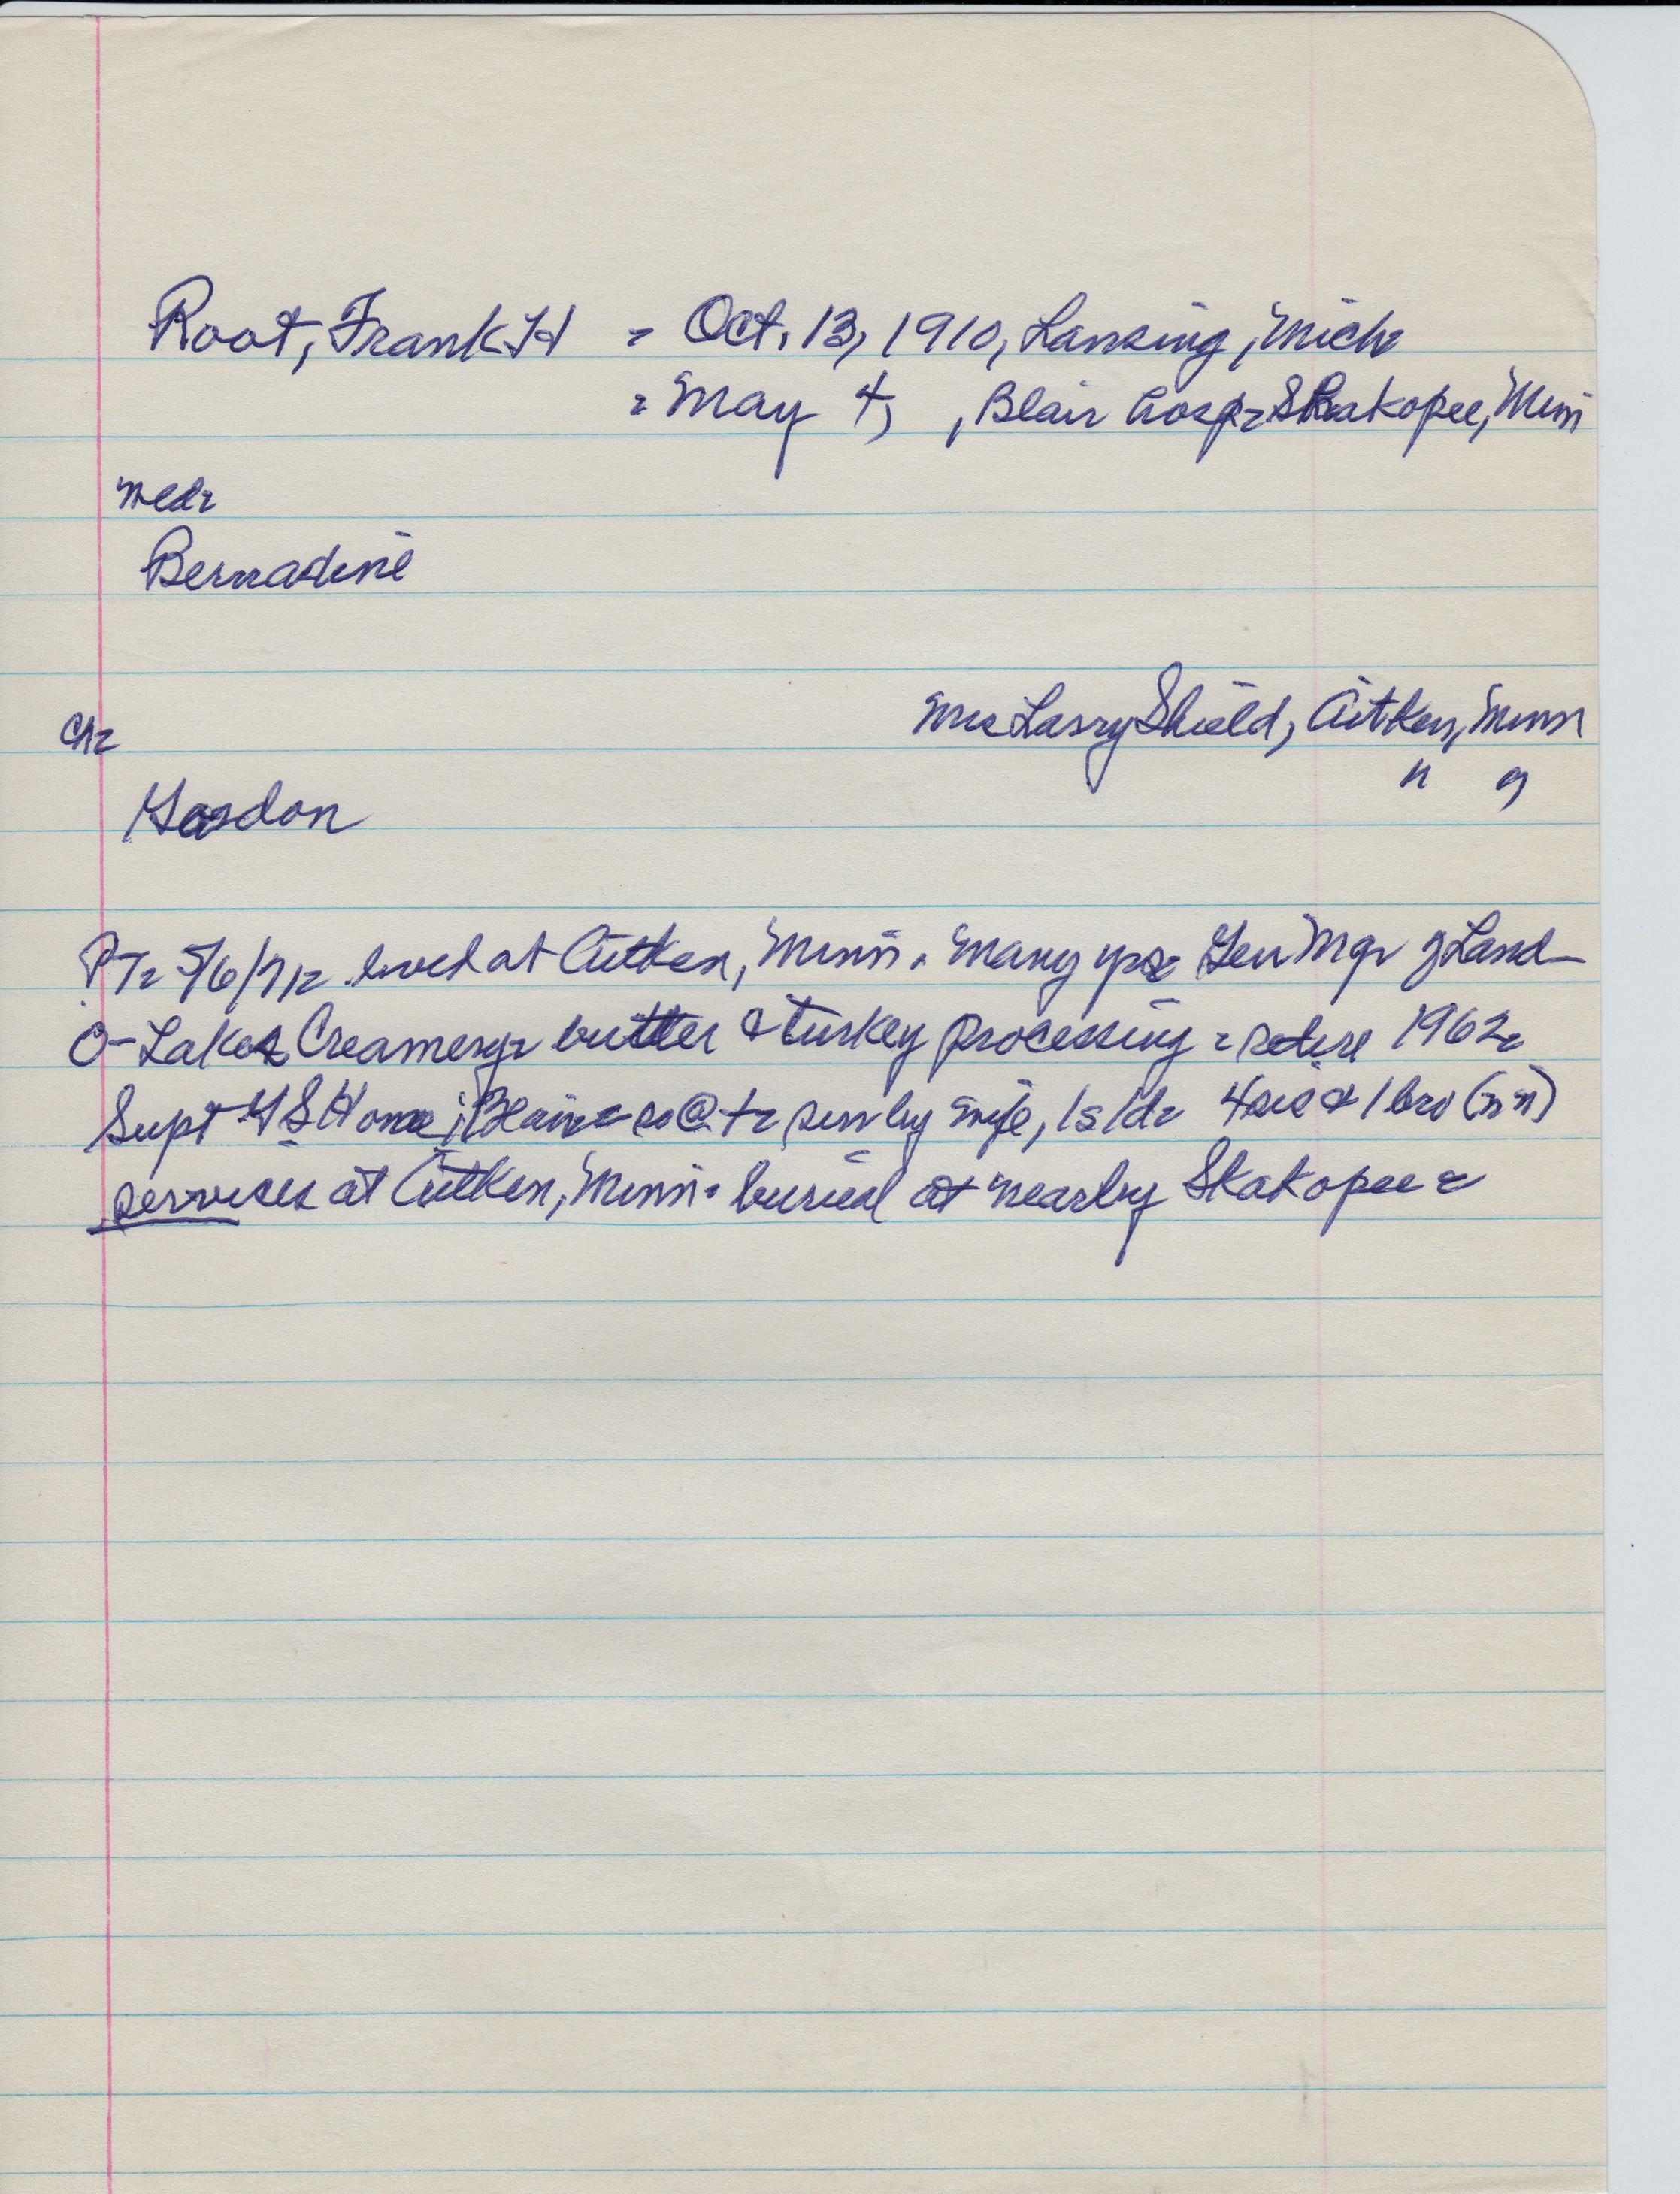 Root, Frank H = Oct. 13, 1910, Lansing, Mich
= May 4, , Blair Hosp = Shakopee, Minn
Med=
Bernadine
Mrs Larry Shield, Aitken, Minn
Ch=
" "
Gordon
PT= 5/6/71= lived at Aitken, Minn. Many yrs= Gen Mgr of Land-
O-Lakes Creamery= butter & turkey processing = retire 1962=
Supt Home surv by wife, 1s/1d= 4 sis & 1 bro (nn)
services at Aitken, Minn. burial at nearby Skakopee =